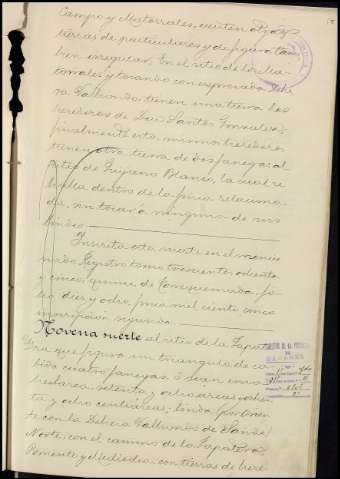 Campo y Matorrales, existen otras
tierras de particulares y de figura tam-
bien irregular. En el sitio de los Ma-
torrales y tocando con expresada
Gallardo tienen una tierra los
herederos de Don Santos Gonzalez
finalmente estos mismos herederos
tienen otra tierra de dos fanegas al
sitio de Blanco, la cual re-
sulta dentro de la finca relaciona-
da, sin tocar a ninguno de sus
linderos.
Inscrita esta suerte en el mencio-
nado Registro tomo trescientos ochenta
y cinco, de fo-
lio diez y ocho, finca mil ciento cinco
inscripción segunda.
Novena suerte al sitio de la Zapate-
ra que figura un triangulo de ca-
bida cuatro fanegas, ó sean una
hectarea, setenta y ocho areas y ochen-
ta y ocho centiareas; linda por Orien-
te con la Dehesa Gallardo de
Norte, con el camino de la Zapatera
Poniente y Mediodia, con tierras de here-